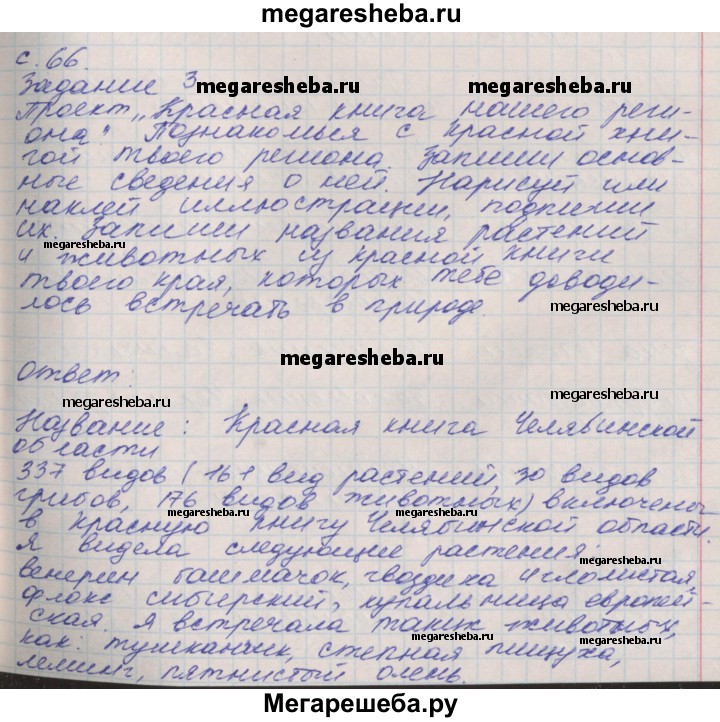 megaresheba.ru
с. 66.
Задание 3
megaresheba.ru
megaresheba.ru
Проект „Красная книга нашего реги-
она". Познакомься с красной кни-
гой твоего региона. Запиши основ-
ные сведения о ней. Нарисуй или
наклей иллюстрации, подпиши
их. Запиши названия растений
megaresheba.ru
и животных из красной книги
твоего края, которых тебе доводи-
лось встречать в природе.
megaresheba.ru
megaresheba.ru
megaresheba.ru
Ответ:
megaresheba.ru
megaresheba.ru
Название: Красная книга Челябинской
области
337 видов (161 вид растений, 30 видов
грибов, 176 видов животных) включены
megaresheba.ru
megaresheba.ru
в красную книгу Челябинской области.
Я видела следующие растения:
megaresheba.ru
венерин башмачок, гвоздика иглолистая,
флокс сибирский, купальница европей-
ская. Я встречала таких животных,
megaresheba.ru
megaresheba.ru
как: тушканчик, степная пищуха,
лемминг, пятнистый олень.
Мегарешеба.ру